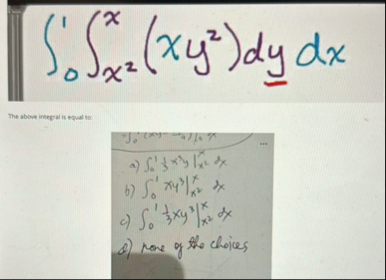 ∫₀¹ ∫ₓ²ˣ (xy²) dy dx
The above integral is equal to:
a) ∫₀¹ ⅓ x²y |ₓ²ˣ dx
b) ∫₀¹ xy³ |ₓ²ˣ dx
c) ∫₀¹ ⅓ xy³ |ₓ²ˣ dx
d) none of the choices